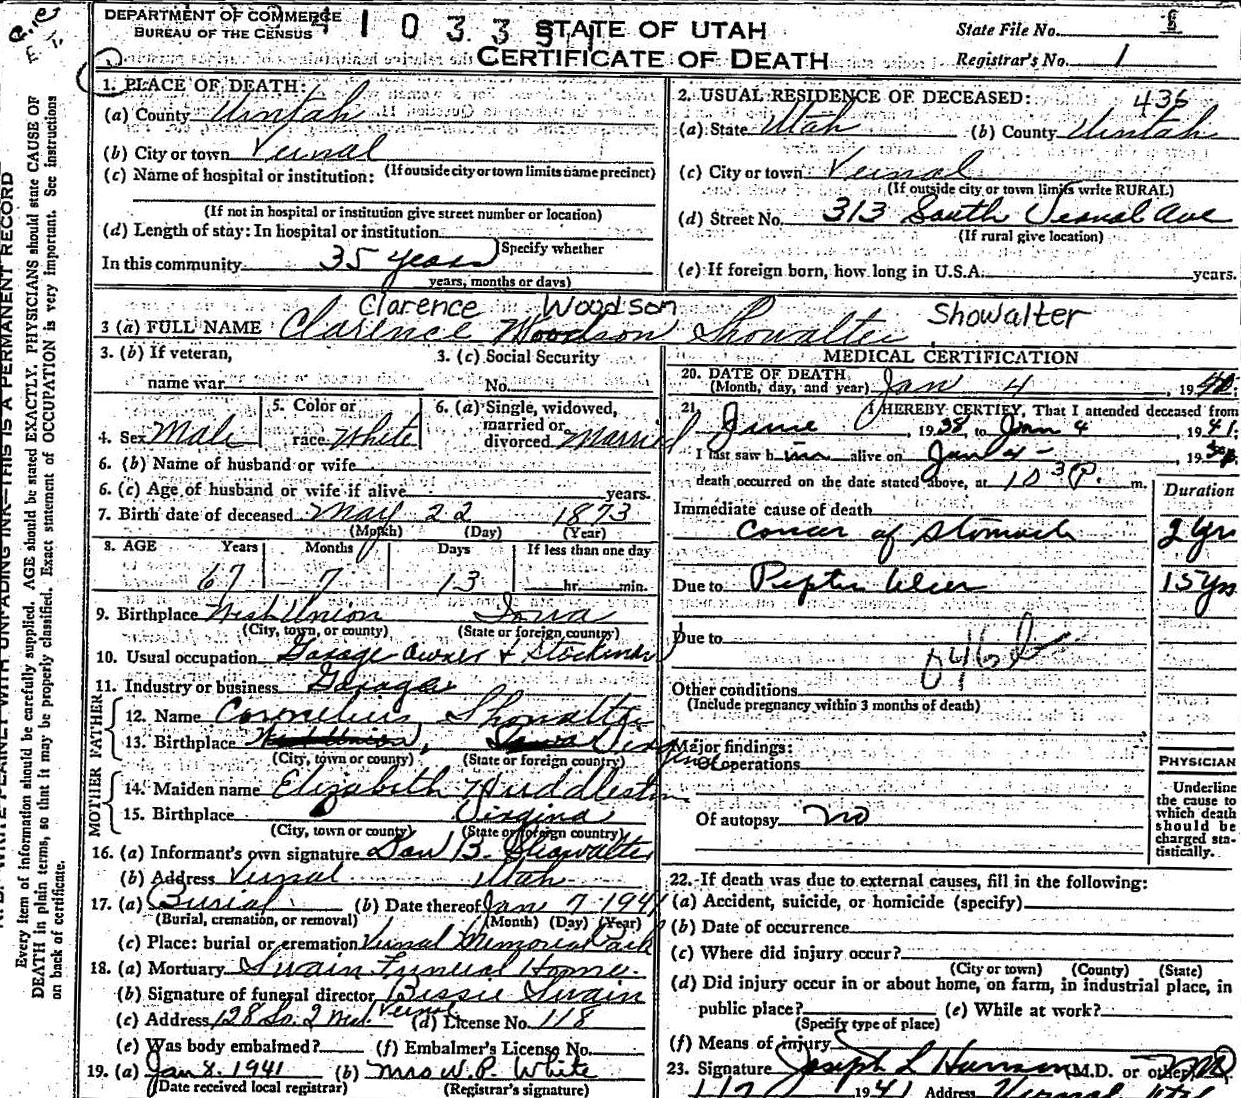 DEPARTMENT OF COMMERCE
BUREAU OF THE CENSUS
STATE OF UTAH
CERTIFICATE OF DEATH
State File No.
Registrar's No. 1
1. PLACE OF DEATH:
(a) County Uintah
(b) City or town Vernal
(If outside city or town limits name precinct)
(c) Name of hospital or institution:
(If not in hospital or institution give street number or location)
(d) Length of stay: In hospital or institution
Specify whether
In this community 35 years
years, months or days)
2. USUAL RESIDENCE OF DECEASED: 436
(a) State Utah (b) County Uintah
(c) City or town Vernal
(If outside city or town limits write RURAL)
(d) Street No. 313 South Vernal Ave
(If rural give location)
(e) If foreign born, how long in U.S.A. years.
Clarence Woodson Showalter
3 (a) FULL NAME Clarence Woodson Showalter
3. (b) If veteran,
name war
3. (c) Social Security
No.
4. Sex Male
5. Color or
race White
6. (a) Single, widowed,
married or
divorced Married
6. (b) Name of husband or wife
6. (c) Age of husband or wife if alive years.
7. Birth date of deceased May 22 1873
(Month) (Day) (Year)
8. AGE Years Months Days If less than one day
67 7 13 hr. min.
9. Birthplace West Union Iowa
(City, town, or county) (State or foreign country)
10. Usual occupation Garage owner & Stockman
11. Industry or business Garage
FATHER
12. Name Cornelius Showalter
13. Birthplace West Union, Iowa Virginia
(City, town or county) (State or foreign country)
MOTHER
14. Maiden name Elizabeth Huddleston
15. Birthplace Virginia
(City, town or county) (State or foreign country)
16. (a) Informant's own signature Dan B. Showalter
(b) Address Vernal Utah
17. (a) Burial (b) Date thereof Jan 7 1941
(Burial, cremation, or removal) (Month) (Day) (Year)
(c) Place: burial or cremation Vernal Memorial Park
18. (a) Mortuary Swain Funeral Home
(b) Signature of funeral director Bessie Swain
(c) Address 128 So. 2 West Vernal (d) License No. 118
(e) Was body embalmed? (f) Embalmer's License No.
19. (a) Jan 8, 1941 (b) Mrs W. P. White
(Date received local registrar) (Registrar's signature)
MEDICAL CERTIFICATION
20. DATE OF DEATH
(Month, day, and year) Jan 4, 19
21. I HEREBY CERTIFY, That I attended deceased from
June, 1938, to Jan 4 1941;
I last saw him alive on Jan 4, 19
death occurred on the date stated above, at 10 30 P. m.
Duration
Immediate cause of death
Cancer of Stomach 2 yrs
Due to Peptic Ulcer 15 yrs
Due to
046b
Other conditions
(Include pregnancy within 3 months of death)
Major findings:
Of operations
Of autopsy no
PHYSICIAN
Underline
the cause to
which death
should be
charged sta-
tistically.
22. If death was due to external causes, fill in the following:
(a) Accident, suicide, or homicide (specify)
(b) Date of occurrence
(c) Where did injury occur?
(City or town) (County) (State)
(d) Did injury occur in or about home, on farm, in industrial place, in
public place? (e) While at work?
(Specify type of place)
(f) Means of injury
23. Signature Joseph L (M.D. or other) MD
1941 Address Vernal
Every item of information should be carefully supplied. AGE should be stated EXACTLY. PHYSICIANS should state CAUSE OF
DEATH in plain terms, so that it may be properly classified. Exact statement of OCCUPATION is very important. See instructions
on back of certificate.